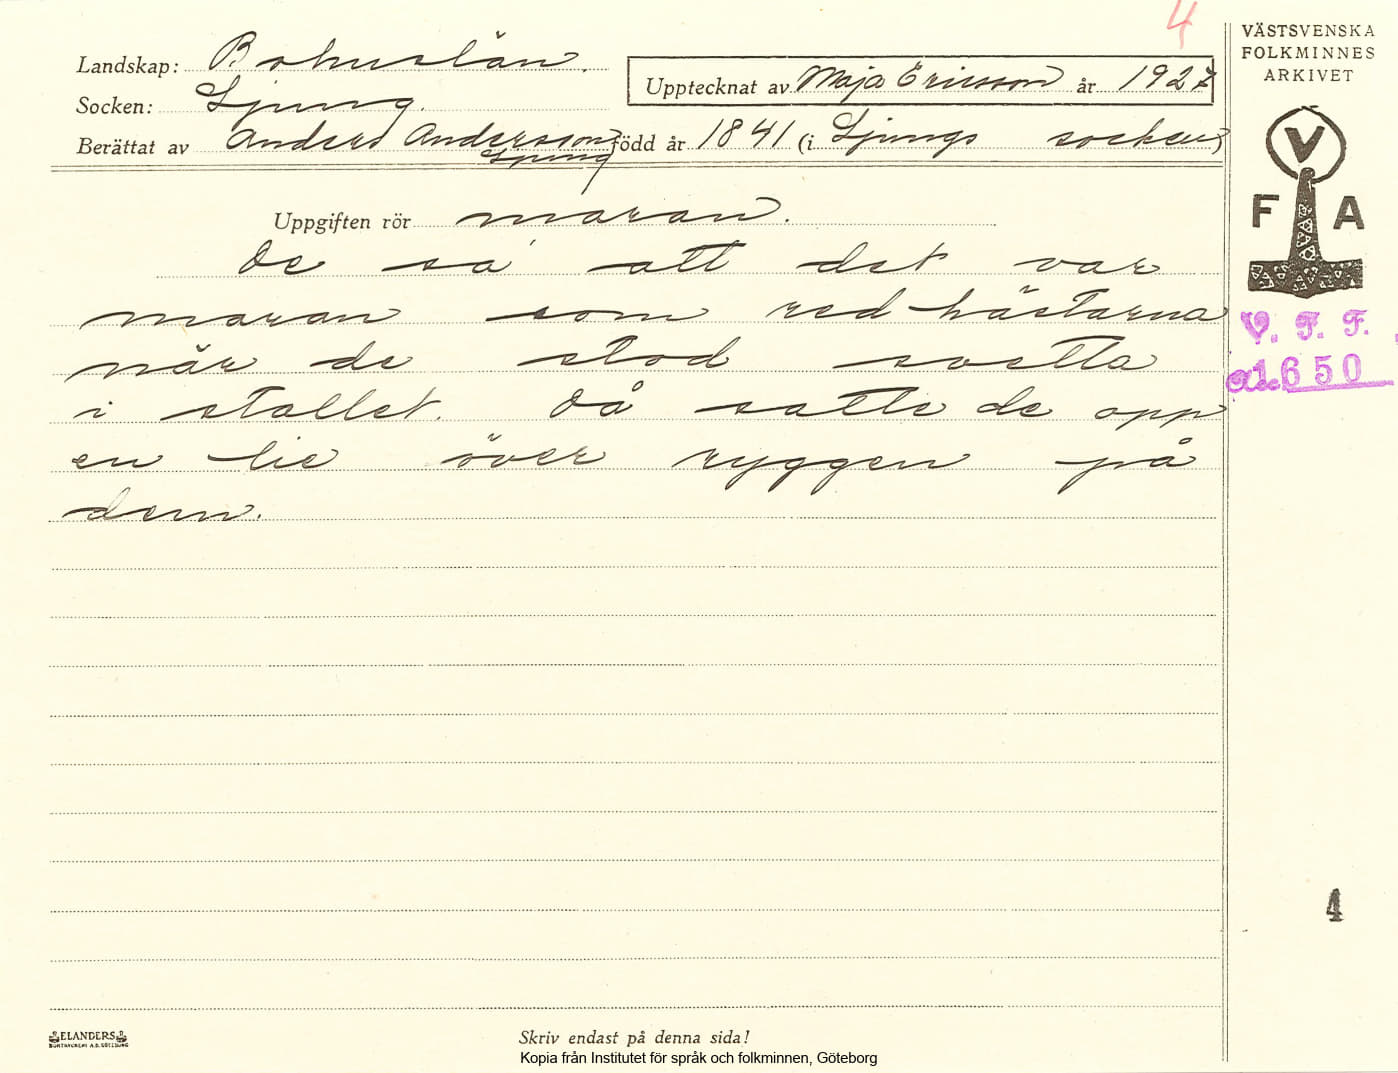 4
VÄSTSVENSKA
FOLKMINNES
ARKIVET
Landskap: Bohuslän.
Upptecknat av Maja Ericsson år 1927
Socken: Ljung.
Berättat av Anders Andersson född år 1841 (i Ljungs socken)
Ljung
V
F A
Uppgiften rör maran.
De sa att det var
maran som red hästarna
när de stod svetta
i stallet. Då satte de opp
en lie över ryggen på
dem.
V. F. F.
1650
4
ELANDERS
BOKTRYCKERI A.B. GÖTEBORG
Skriv endast på denna sida!
Kopia från Institutet för språk och folkminnen, Göteborg